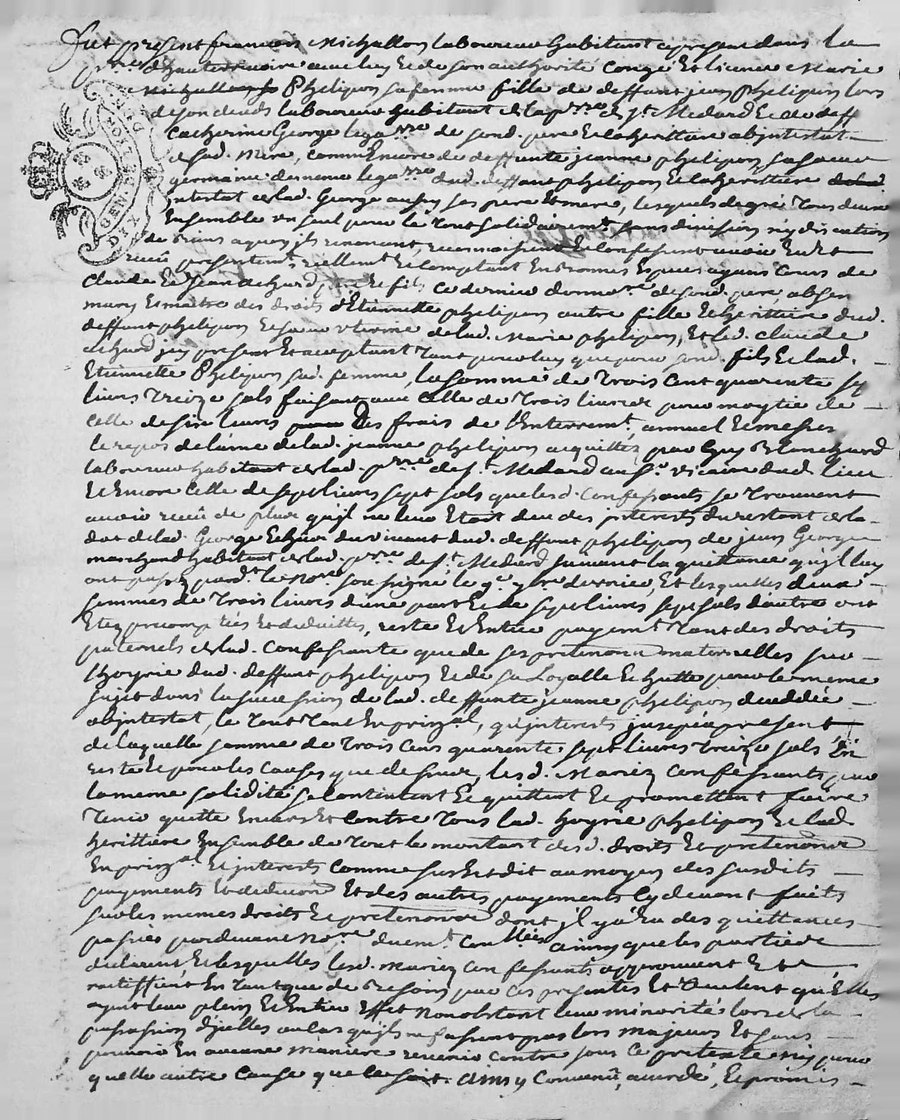 Fut present francois Michallon laboureur habitant a present dans la
p.rre d'hauterivoire avec luy et de son authorité congé et licence Marie
Philipon sa femme fille de deffunt jean philipon lors
de son deceds laboureur habitant en la p.rre de S.t Medard et de deff
Catherine George legat.re de sond. pere et heritiere abjntestat
de sad. Mere, comm'Encore de deffunte jeanne philipon sa soeur
germaine de meme legat.re dud. deffunt philipon et heritiere
intestat de lad. George aussy ses pere et mere, lesquels de gré tous deux
Ensemble un seul pour le tout solidairement sans division ny discution
de biens a quoy jls renoncent, reconnoissent et confessent avoir Eu et
receu presentem.t reellem.t et comptant En bonnes Especes ayant cours de
Claude et Jean achard pere et fils ce dernier donnat.re de sond. pere, absen
mary et maitre des droits d'Etiennette philipon autre fille et heritiere dud.
deffunt philipon et soeur uterine de lad. Marie philipon, Et led. claude
achard jcy present et acceptant tant pour luy que pour sond. fils et lad.
Etiennette Philipon sad. femme, la somme de trois cent quarente sept
livres treize sols faisant avec celle de trois livres pour moytie de
celle de six livres des frais de l'Enterrem.t annuel et messes
le repos de l'ame de lad. jeanne philipon acquittés par Guy Blanchard
laboureur habitant en lad. p.rre de S.t Medard au S.r vicaire dud. lieu
et Encore celle de sept livres sept sols que lesd. confessants se trouvent
avoir receu de plus qu'jl ne leur Etoit deu des jnterests du restant de la
dot de lad. George du vivant dud. deffunt philipon de jean George
marchand habitant en lad. p.rre de S.t Medard suivant la quittance qu'jl luy
ont passée pard.t le no.re soussigné le 9.e dernier, Et lesquelles deux
sommes de trois livres d'une part et de sept livres sept sols d'autre ont
Eté precomptées et deduites, reste et Entier payem.t tant des droits
paternels de lad. confessante que de ses pretentions maternelles sur
hoyrie dud. deffunt philipon et de sa Loyalle Echutte pour le meme
sujet dans la succession de lad. deffunte jeanne philipon decedée
abjntestat, le tout tant En prinz.al, qu'jnterests jusqu'a present
de laquelle somme de trois cens quarente sept livres treize sols En
reste et pour les causes que dessus, lesd. Mariez confessants sous
la meme solidité se contentent et quittent et promettent faire
tenir quitte Envers et contre tous lad. hoyrie philipon et lad
heritiere Ensemble de tout le montant desd. droits et pretentions
En prinz.al et jnterests comme sus est dit au moyen des susdits
payements et deduction Et des autres payements cy devant faits
sur les memes droits et pretentions dont jl y a Eu des quittances
passées pardevant no.re duem.t conllées ainsy que les parties
declarent, et lesquelles lesd. mariez confessants approuvent et
rattiffient En tant que de besoin par ces presentes Et veulent qu'Elles
ayent leur plein et Entier Effet nonobstant leur minorité lors de la
passation d'jcelles au cas qu'jls ne fussent pas lors majeurs Et sans
pouvoir En aucune maniere revenir contre sous ce pretexte ny pour
quelle autre cause que ce soit. Ainsy convenu, accordé, et promis